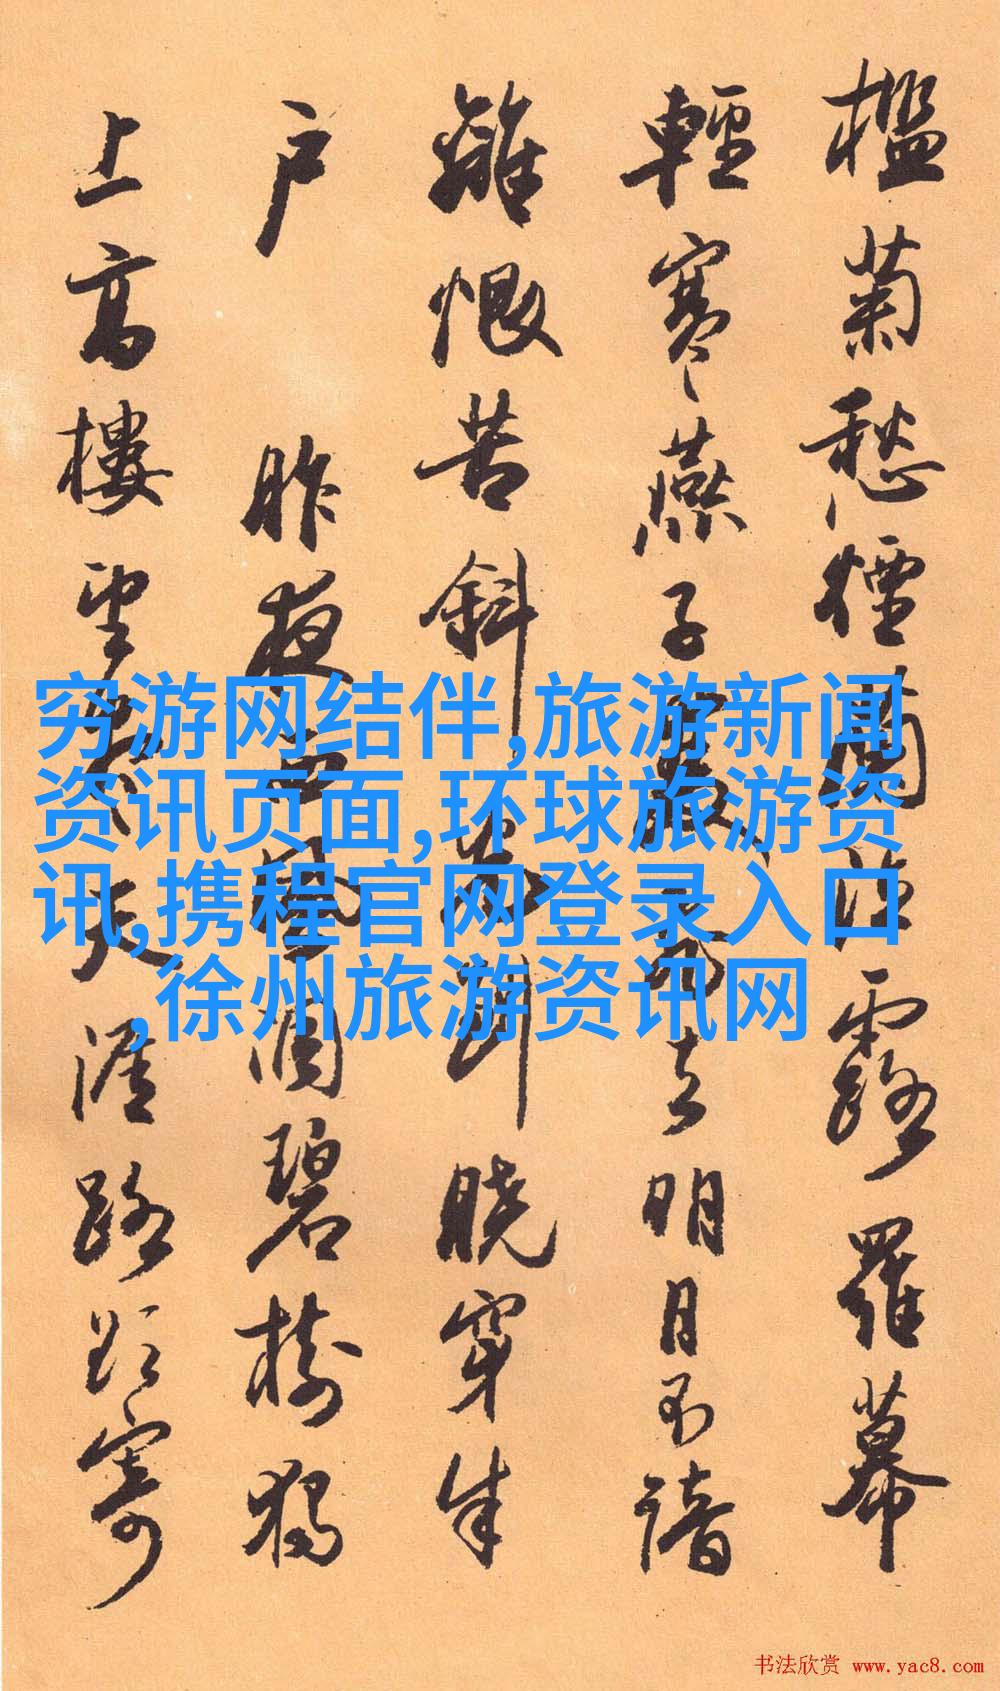 檻菊愁煙蘭泣露羅幕
輕寒燕子雙飛去明月不諳
離恨苦斜光到曉穿朱
户 昨夜西風凋碧樹獨
上高樓望盡天涯路欲寄
穷游网结伴,旅游新闻
资讯页面,环球旅游资
讯,携程官网登录入口
,徐州旅游资讯网
书法欣赏 www.yac8.com